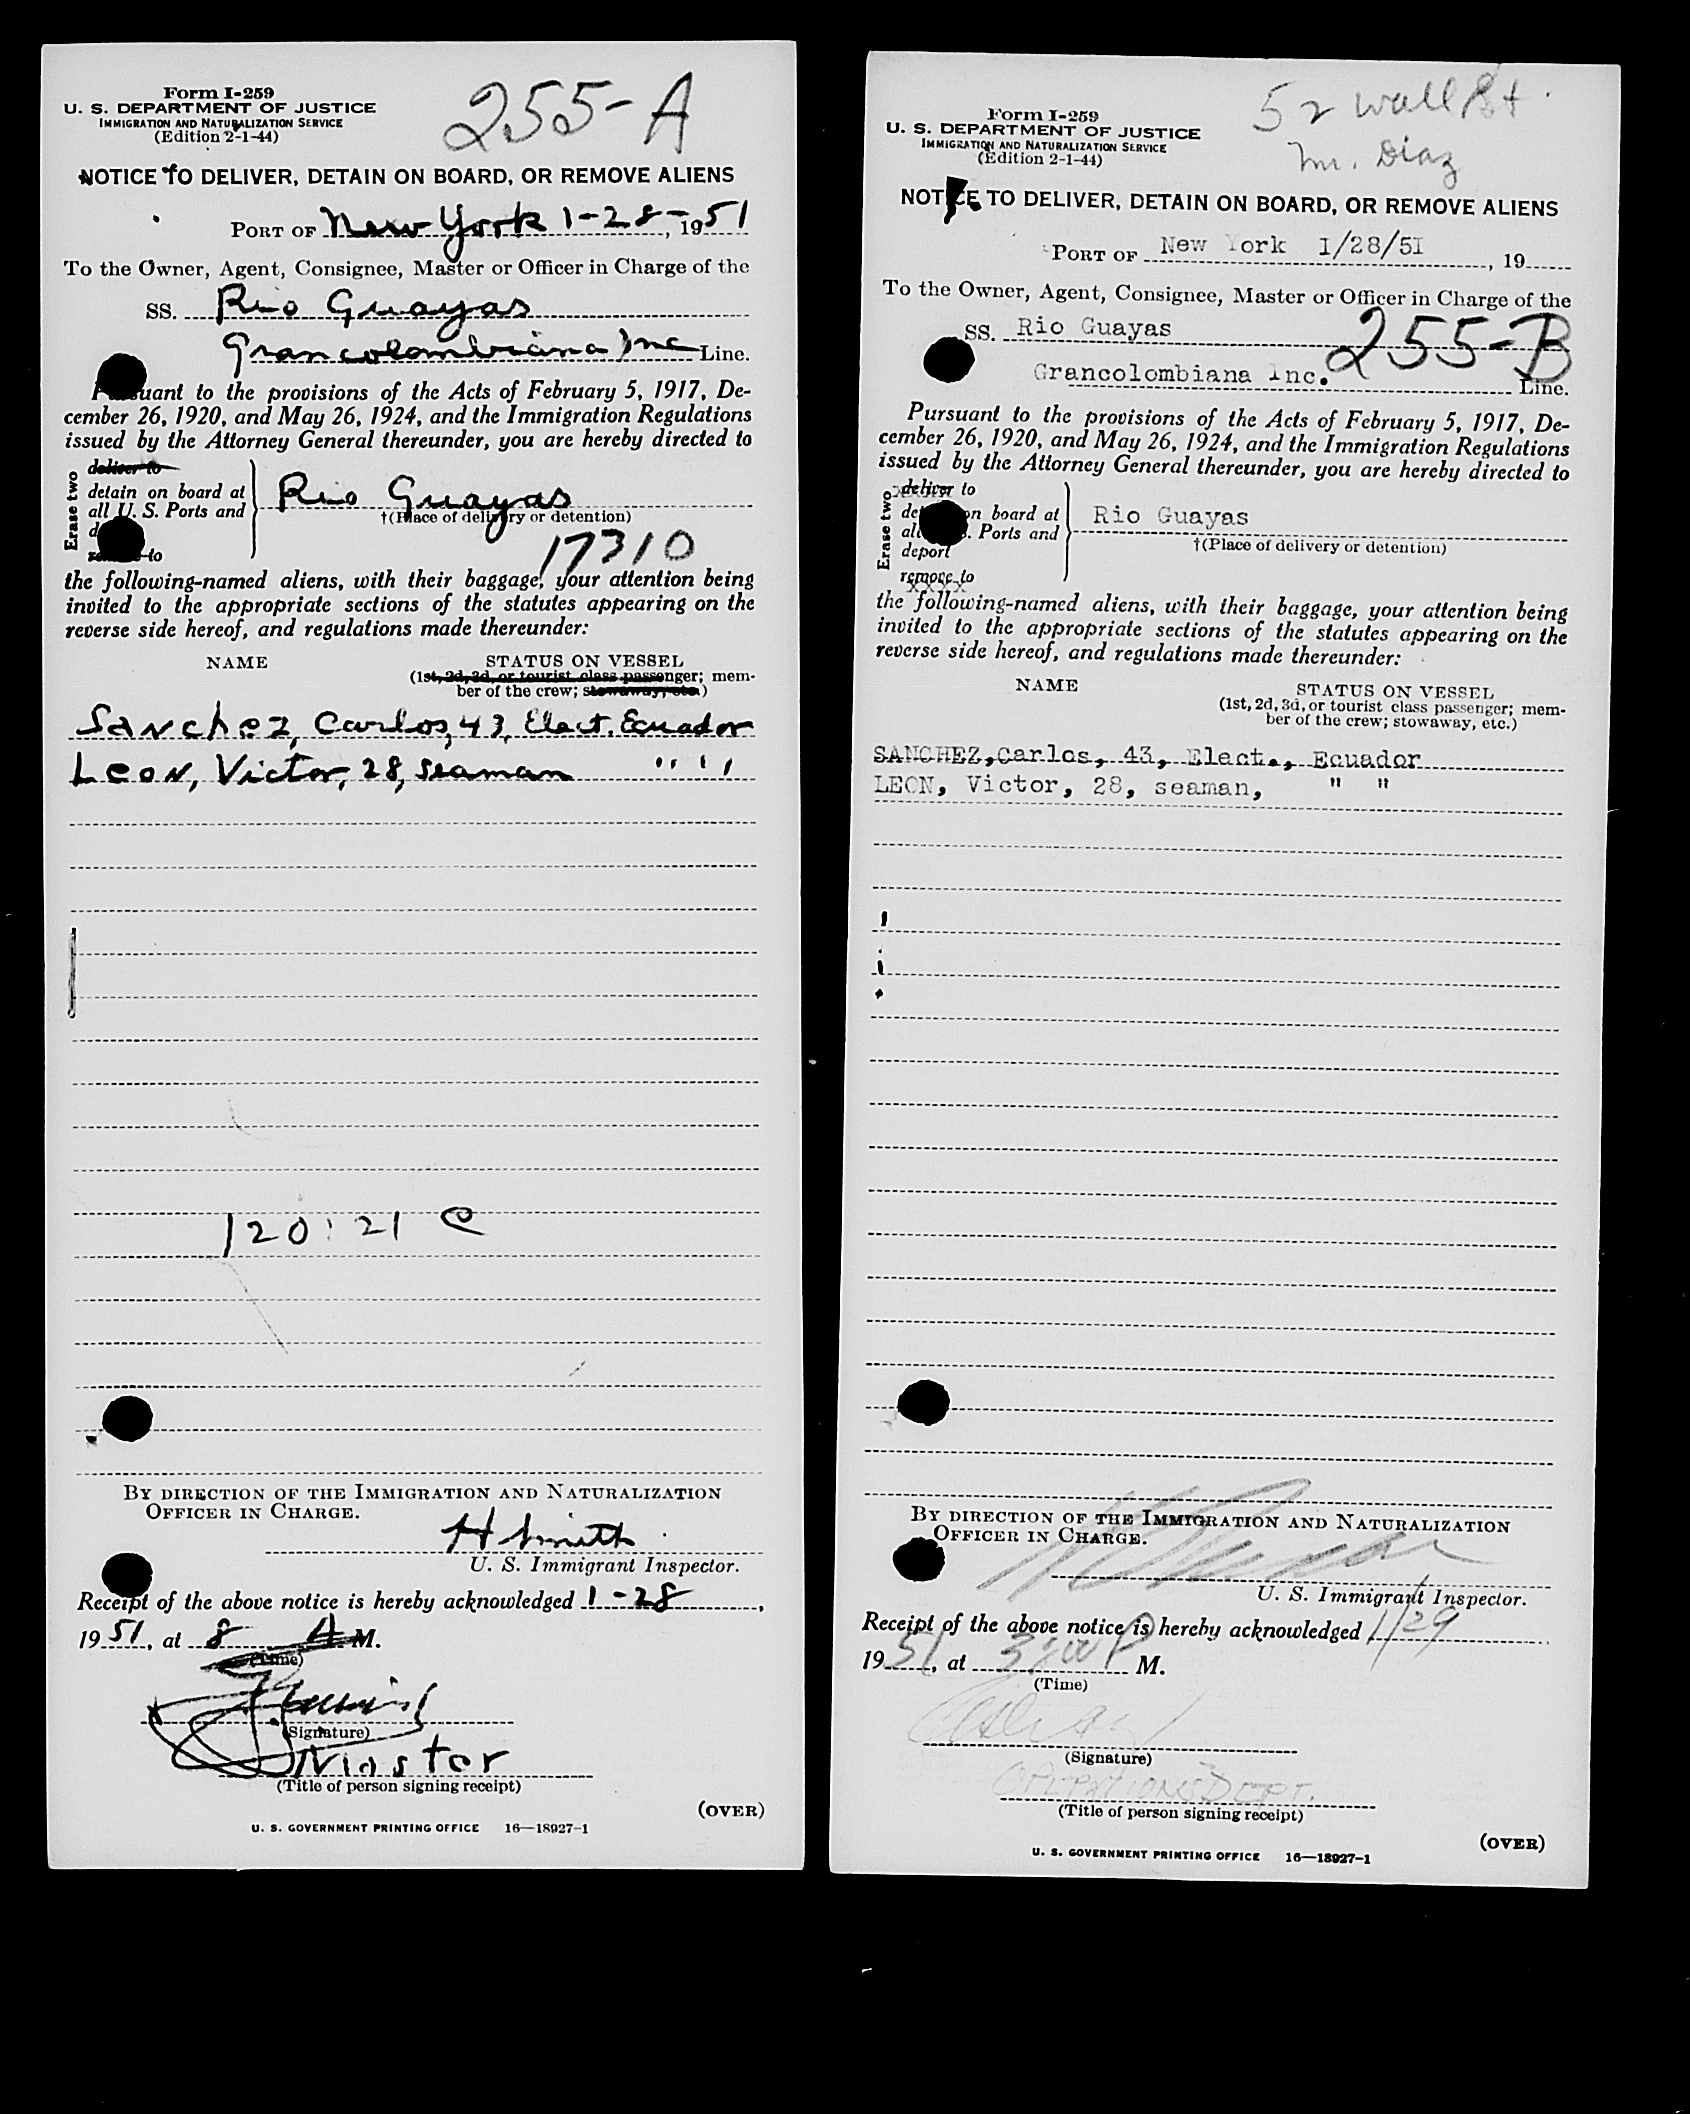 Form I-259
U. S. DEPARTMENT OF JUSTICE
IMMIGRATION AND NATURALIZATION SERVICE
(Edition 2-1-44)
255-A
NOTICE TO DELIVER, DETAIN ON BOARD, OR REMOVE ALIENS
PORT OF New York 1-28-, 1951
To the Owner, Agent, Consignee, Master or Officer in Charge of the
SS. Rio Guayas
Grancolombiana Inc Line.
Pursuant to the provisions of the Acts of February 5, 1917, De-
cember 26, 1920, and May 26, 1924, and the Immigration Regulations
issued by the Attorney General thereunder, you are hereby directed to
Erase two
deliver to
detain on board at
all U. S. Ports and
to
Rio Guayas
†(Place of delivery or detention)
17310
the following-named aliens, with their baggage, your attention being
invited to the appropriate sections of the statutes appearing on the
reverse side hereof, and regulations made thereunder:
NAME
STATUS ON VESSEL
(1st, 2d, 3d, or tourist class passenger; mem-
ber of the crew; stowaway, etc.)
Sanchez, Carlos, 43, Elect. Ecuador
Leon, Victor, 28, seaman " "
120:21 C
BY DIRECTION OF THE IMMIGRATION AND NATURALIZATION
OFFICER IN CHARGE.
H Smith
U. S. Immigrant Inspector.
Receipt of the above notice is hereby acknowledged 1-28,
1951, at 8 A M.
(Time)
(Signature)
Master
(Title of person signing receipt)
(OVER)
U. S. GOVERNMENT PRINTING OFFICE 16—18927-1
52 Wall St.
Mr. Diaz
Form I-259
U. S. DEPARTMENT OF JUSTICE
IMMIGRATION AND NATURALIZATION SERVICE
(Edition 2-1-44)
NOTICE TO DELIVER, DETAIN ON BOARD, OR REMOVE ALIENS
PORT OF New York 1/28/51, 19
To the Owner, Agent, Consignee, Master or Officer in Charge of the
SS. Rio Guayas
255-B
Grancolombiana Inc. Line.
Pursuant to the provisions of the Acts of February 5, 1917, De-
cember 26, 1920, and May 26, 1924, and the Immigration Regulations
issued by the Attorney General thereunder, you are hereby directed to
Erase two
deliver to
detain on board at
all U. S. Ports and
deport
remove to
Rio Guayas
†(Place of delivery or detention)
the following-named aliens, with their baggage, your attention being
invited to the appropriate sections of the statutes appearing on the
reverse side hereof, and regulations made thereunder:
NAME
STATUS ON VESSEL
(1st, 2d, 3d, or tourist class passenger; mem-
ber of the crew; stowaway, etc.)
SANCHEZ, Carlos, 43, Elect., Ecuador
LEON, Victor, 28, seaman, " "
BY DIRECTION OF THE IMMIGRATION AND NATURALIZATION
OFFICER IN CHARGE.
U. S. Immigrant Inspector.
Receipt of the above notice is hereby acknowledged 1/29
1951, at 3:00 P M.
(Time)
(Signature)
OPERATIONS DEPT.
(Title of person signing receipt)
(OVER)
U. S. GOVERNMENT PRINTING OFFICE 16—18927-1